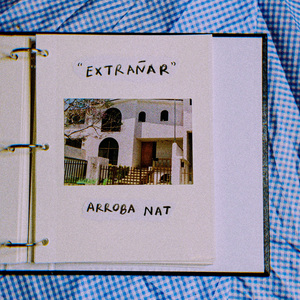 "EXTRAÑAR"
ARROBA NAT